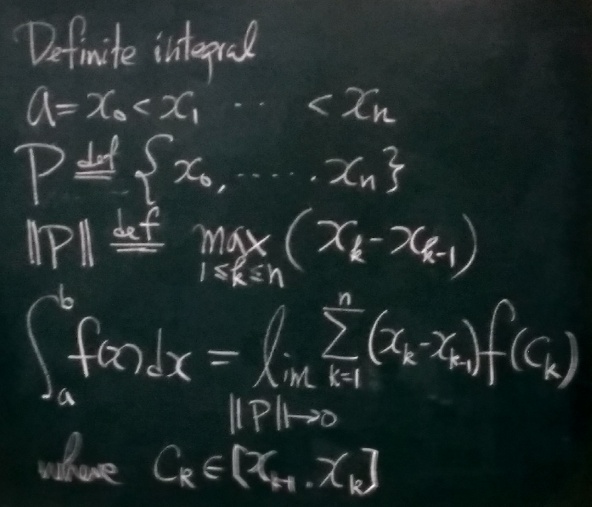 Definite integral
a = x₀ < x₁ ·· < xₙ
P ≝ { x₀, ······ xₙ }
‖P‖ ≝ max (xₖ - xₖ₋₁)
1≤k≤n
∫ₐᵇ f(x)dx = lim ∑ₖ₌₁ⁿ (xₖ - xₖ₋₁) f(cₖ)
‖P‖↦0
where cₖ ∈ [xₖ₋₁, xₖ]